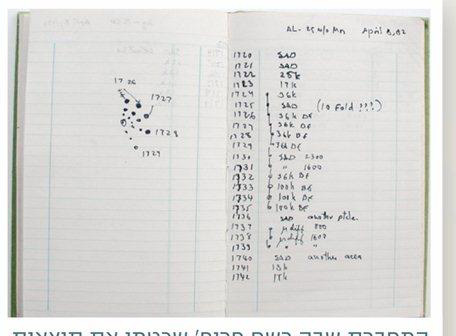 1726
1727
1728
1729
AL-25 w/o Mn April 8, 82
1720 SAD
1721 SAD
1722 25k
1723 17k
1724 36k
1725 SAD (10 Fold ???)
1726 36k DF
1727 36k DF
1728 36k DF
1729 36k DF
1730 SAD 2300
1731 " 1600
1732 36k DF
1733 100k DF
1734 100k DF
1735 100k DF
1736 SAD another ptcle.
1737 μ diff 880
1738 μ diff 1600
1739 " "
1740 SAD another area
1741 15k
1742 17k